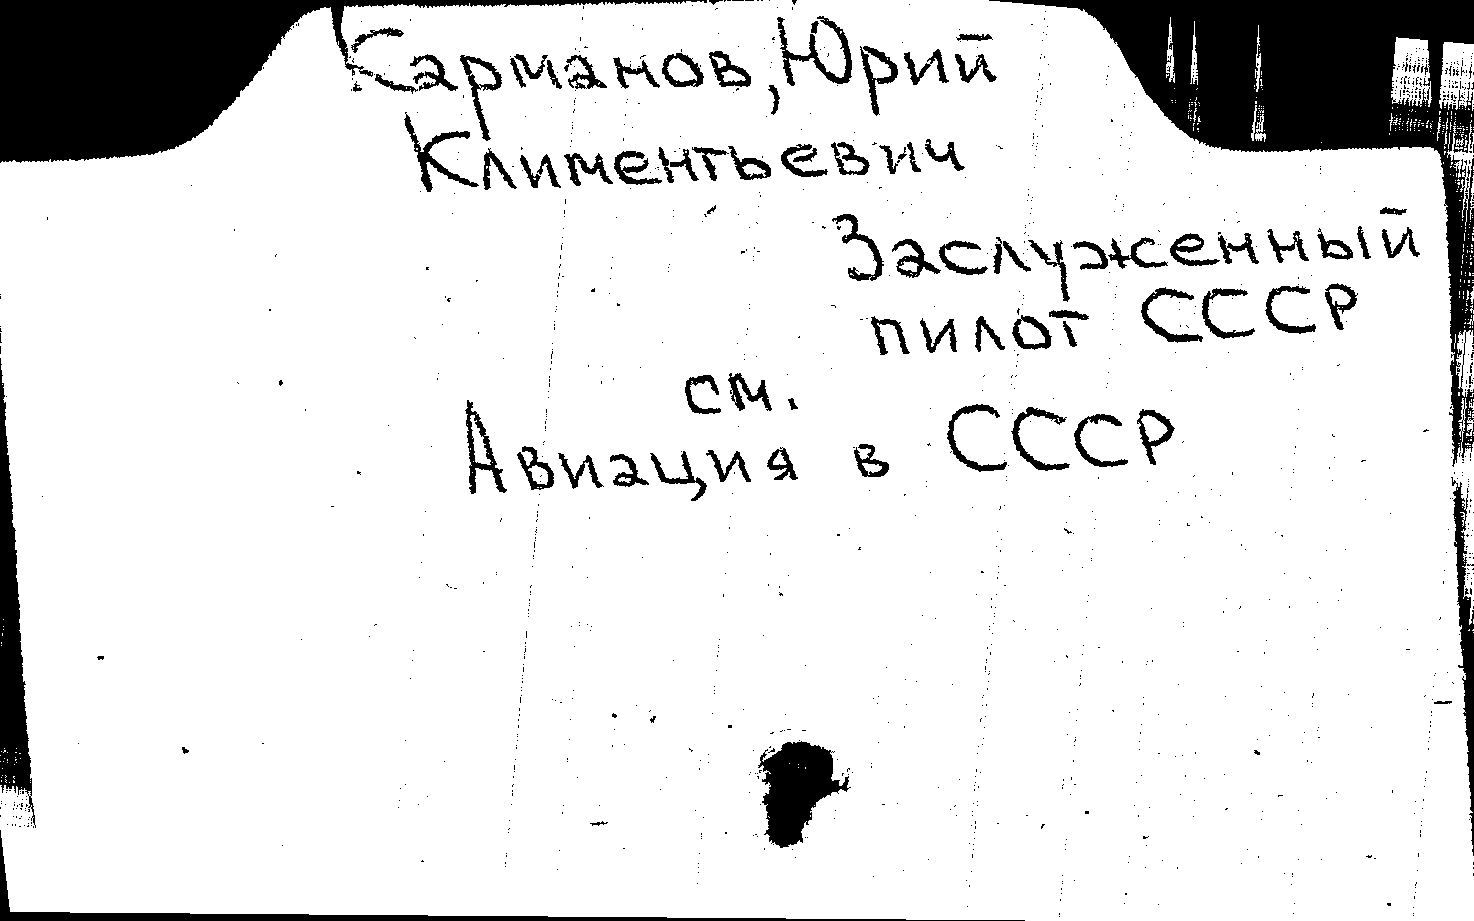 Карманов, Юрий
Климентьевич
Заслуженный
пилот СССР
см.
Авиация в СССР